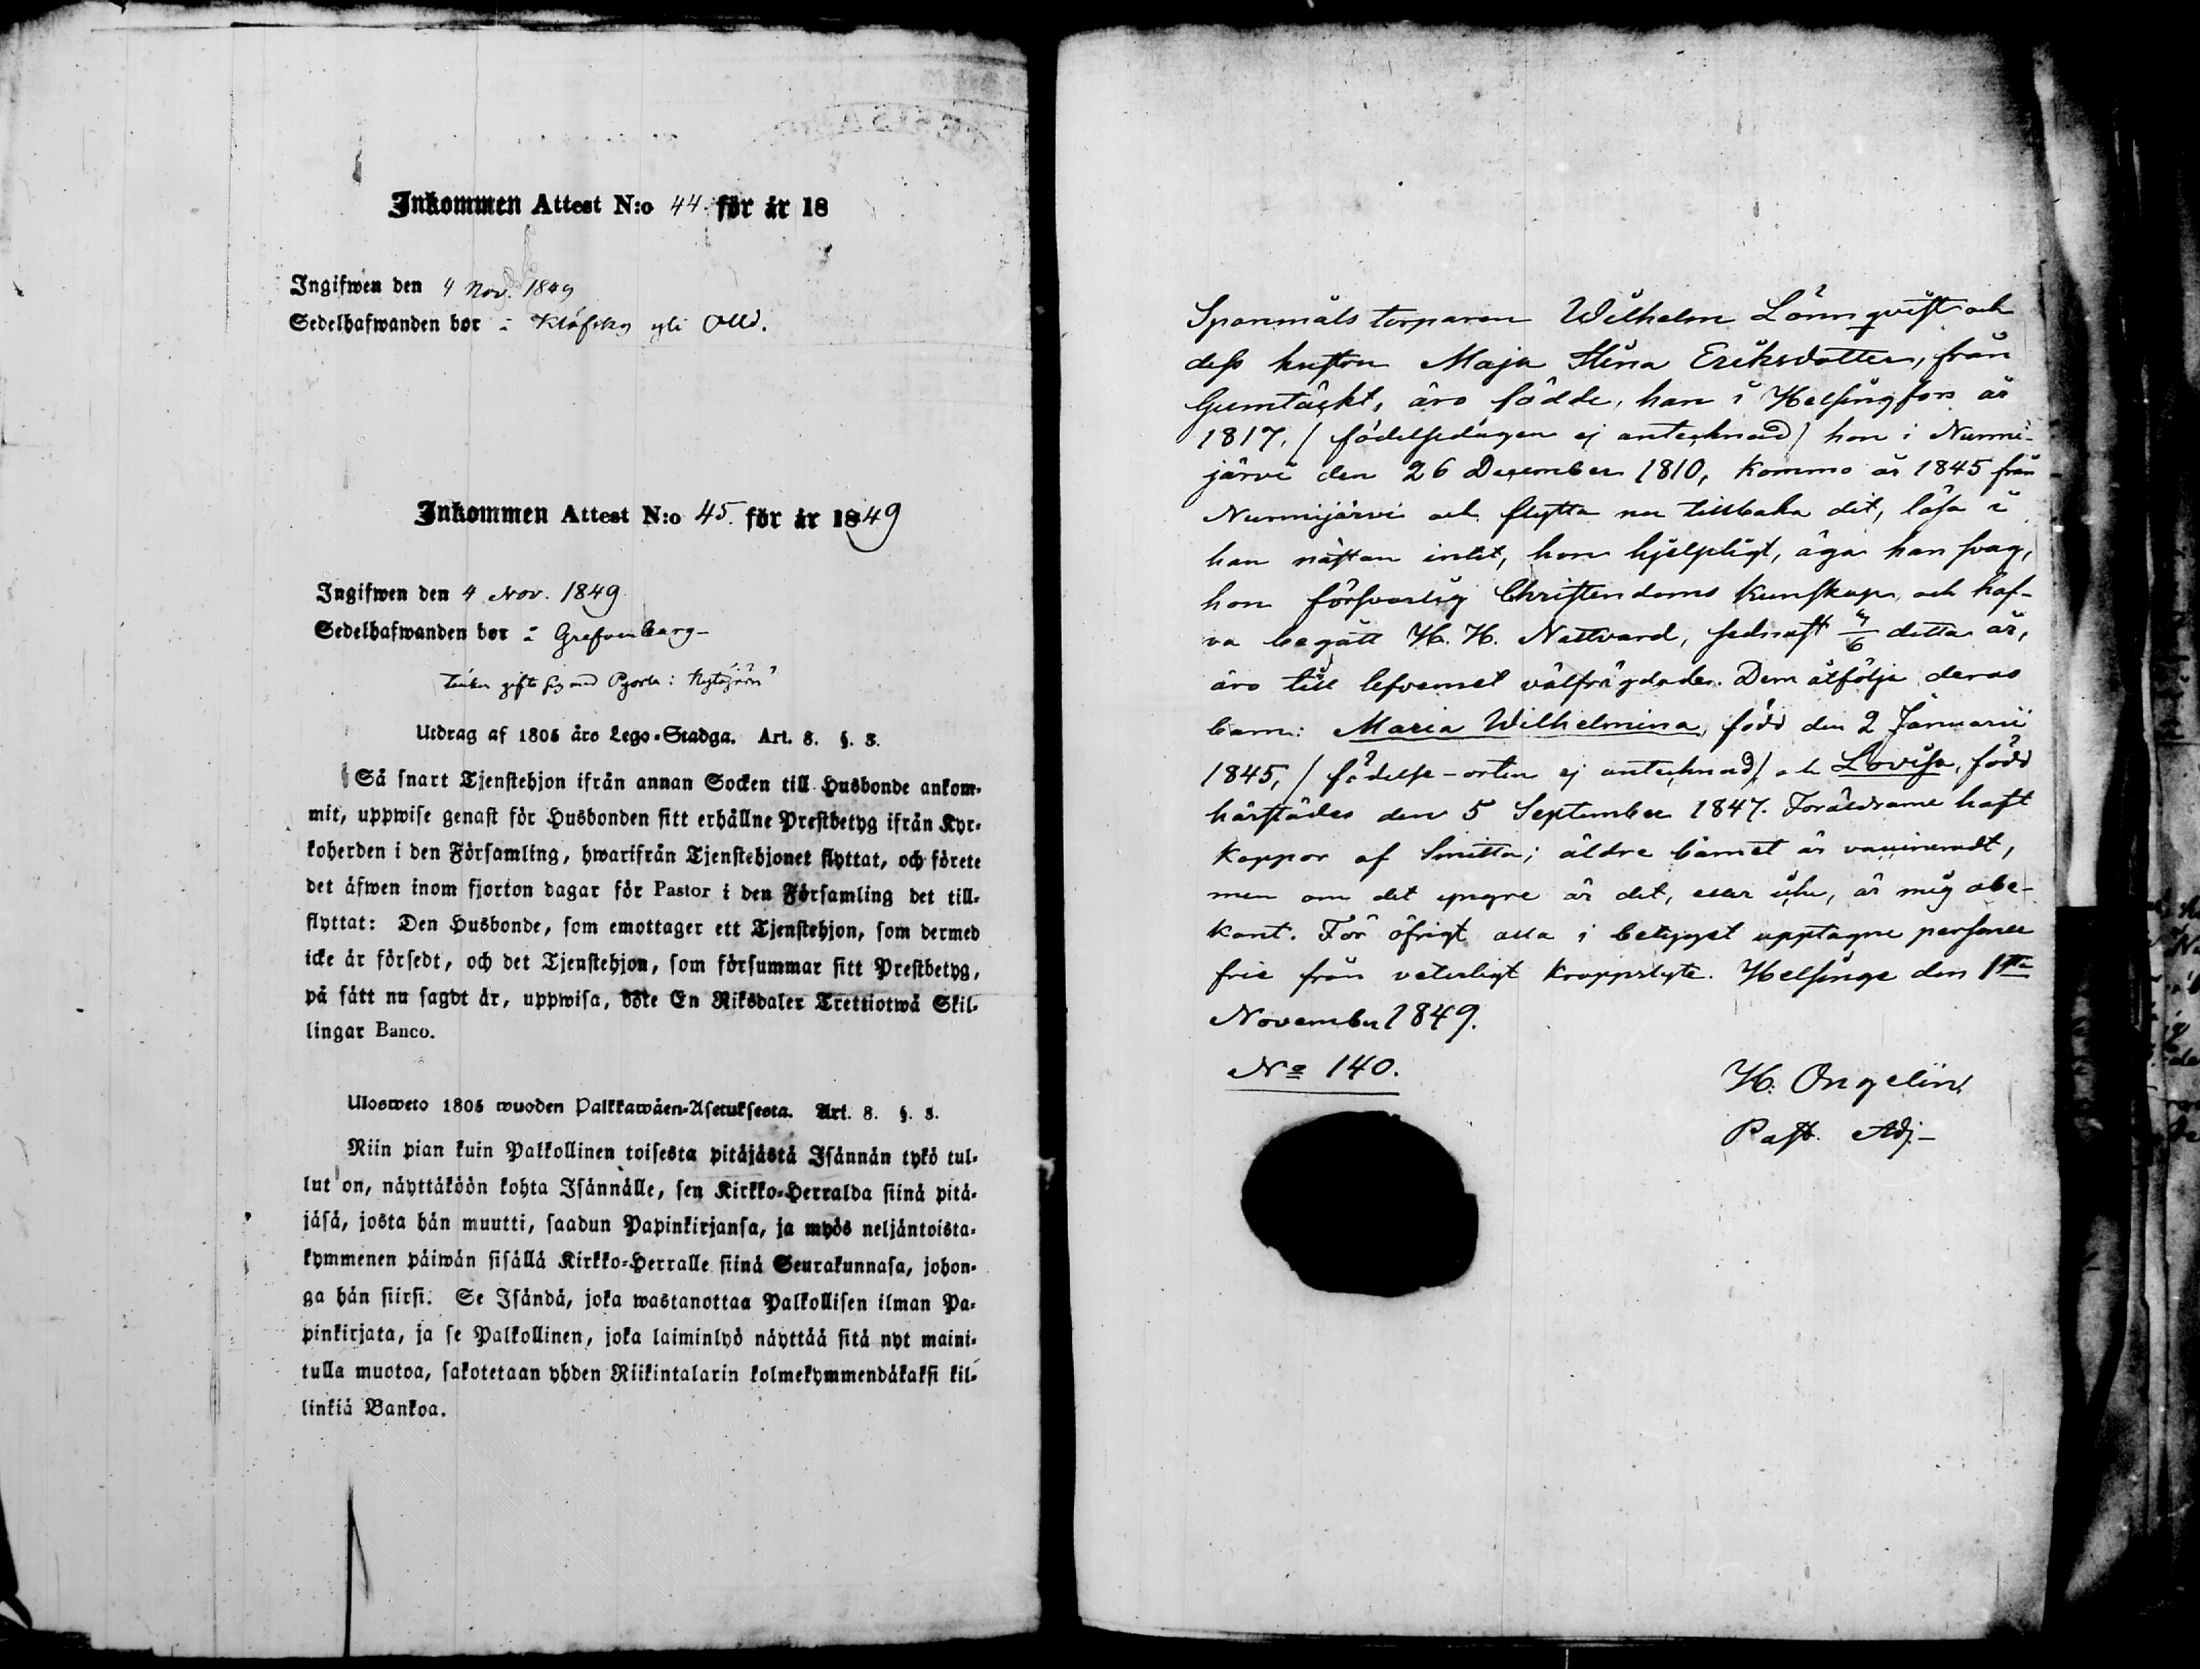 Inkommen Attest N:o 44. för år 18
Ingifwen den 4 Nov. 1849
Sedelhafwanden bor i Klöfskog
Inkommen Attest N:o 45. för år 1849
Ingifwen den 4 Nov. 1849
Sedelhafwanden bor i Grefvenberg
gifta sig med
Utdrag af 1805 års Lego-Stadga. Art. 8. §. 3.
Så snart Tjenstehjon ifrån annan Socken till Husbonde ankom-
mit, uppwise genast för Husbonden sitt erhållne Prestbetyg ifrån Kyr-
koherden i den Församling, hwarifrån Tjenstehjonet flyttat, och förete
det äfwen inom fjorton dagar för Pastor i den Församling det till-
flyttat: Den Husbonde, som emottager ett Tjenstehjon, som dermed
icke är försedt, och det Tjenstehjon, som försummar sitt Prestbetyg,
på sätt nu sagdt är, uppwisa, böte En Riksdaler Trettiotwå Skil-
lingar Banco.
Ulosweto 1805 wuoden Palkkawäen-Asetuksesta. Art. 8. §. 3.
Niin pian kuin Palkollinen toisesta pitäjästä Isännän tykö tul-
lut on, näyttäköön kohta Isännälle, sen Kirkko-Herralda siinä pitä-
jäsä, josta hän muutti, saadun Papinkirjansa, ja myös neljäntoista-
kymmenen päiwän sisällä Kirkko-Herralle siinä Seurakunnasa, johon-
ga hän siirsi. Se Isändä, joka wastanottaa Palkollisen ilman Pa-
pinkirjata, ja se Palkollinen, joka laiminlyö näyttää sitä nyt maini-
tulla muotoa, sakotetaan yhden Riikintalarin kolmekymmendäkaksi kil-
linkiä Bankoa.
Spanmåls torparen Wilhelm Lönnqvist och
dess hustru Maja Stina Eriksdotter, från
Gumtäckt, äro födde, han i Helsingfors år
1817, / födelsedagen ej antecknad / hon i Nurmi-
järvi den 26 December 1810, kommo år 1845 från
Nurmijärvi och flytta nu tillbaka dit, läsa i
han nästan intet, hon hjelpligt, äga han svag,
hon försvarlig Christendoms kunskap och haf-
va begått H. H. Nattvard, sednast detta år,
äro till lefvernet välfrägdade. Dem åtfölja deras
barn: Maria Wilhelmina, född den 2 Januarii
1845, / födelse-orten ej antecknad / och Lovisa, född
härstädes den 5 September 1847. Föräldrarne haft
koppor af Smitta; äldre barnet är vaccineradt,
men om det yngre är det, eller icke, är mig obe-
kant. För öfrigt alla i betyget upptagne personer
frie från veterligt kroppslyte. Helsinge den 1sta
November 1849.
No 140.
H. Ongelin
Past. Adj.